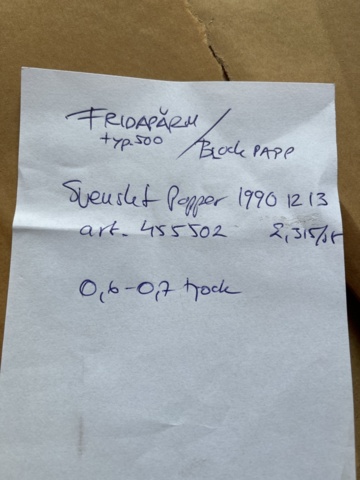 FRIDAPÄRM /
typ.500 / Block PAPP
Svenskt Papper 1990 12 13
art. 455502 2,315/st
0,6-0,7 tjock